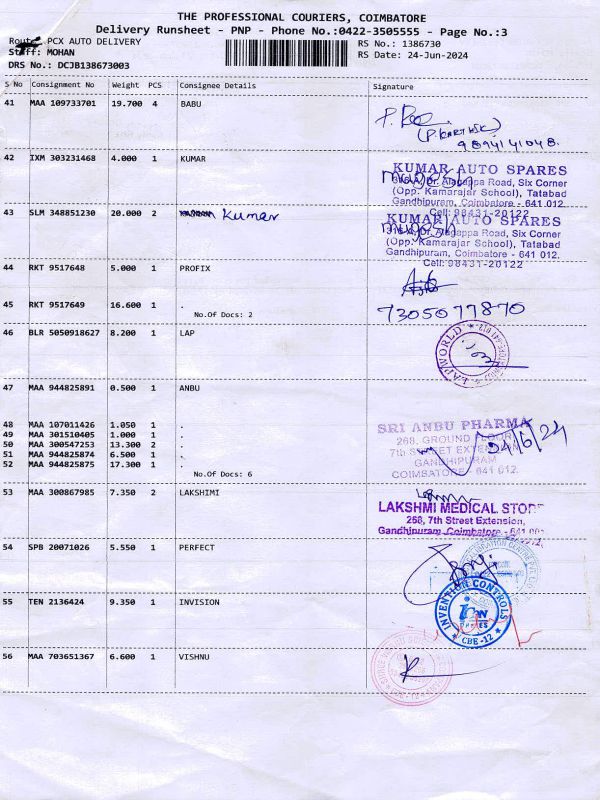 THE PROFESSIONAL COURIERS, COIMBATORE
Delivery Runsheet - PNP - Phone No.:0422-3505555 - Page No.:3
Route: PCX AUTO DELIVERY
RS No.: 1386730
Staff: MOHAN
RS Date: 24-Jun-2024
DRS No.: DCJB138673003
S No Consignment No Weight PCS Consignee Details Signature
41 MAA 109733701 19.700 4 BABU
(P.KARTHIK)
9894141048.
42 IXM 303231468 4.000 1 KUMAR
KUMAR AUTO SPARES
Alagappa Road, Six Corner
(Opp. Kamarajar School), Tatabad
Gandhipuram, Coimbatore - 641 012.
Cell: 98431-20122
43 SLM 348851230 20.000 2 Kumar
KUMAR AUTO SPARES
Alagappa Road, Six Corner
(Opp. Kamarajar School), Tatabad
Gandhipuram, Coimbatore - 641 012.
Cell: 98431-20122
44 RKT 9517648 5.000 1 PROFIX
45 RKT 9517649 16.600 1 .
7305077870
No.Of Docs: 2
46 BLR 5050918627 8.200 1 LAP
LAPWORLD
47 MAA 944825891 0.500 1 ANBU
48 MAA 107011426 1.050 1 .
49 MAA 301510405 1.000 1 .
50 MAA 300547253 13.300 2 .
51 MAA 944825874 6.500 1 .
52 MAA 944825875 17.300 1 .
No.Of Docs: 6
SRI ANBU PHARMA
268, GROUND FLOOR
7th STREET EXTENSION
GANDHIPURAM
COIMBATORE - 641 012.
24/6/24
53 MAA 300867985 7.350 2 LAKSHIMI
LAKSHMI MEDICAL STORE
268, 7th Street Extension,
Gandhipuram, Coimbatore - 641 012
54 SPB 20071026 5.550 1 PERFECT
55 TEN 2136424 9.350 1 INVISION
INVENTION CONTROLS
CBE-12
56 MAA 703651367 6.600 1 VISHNU